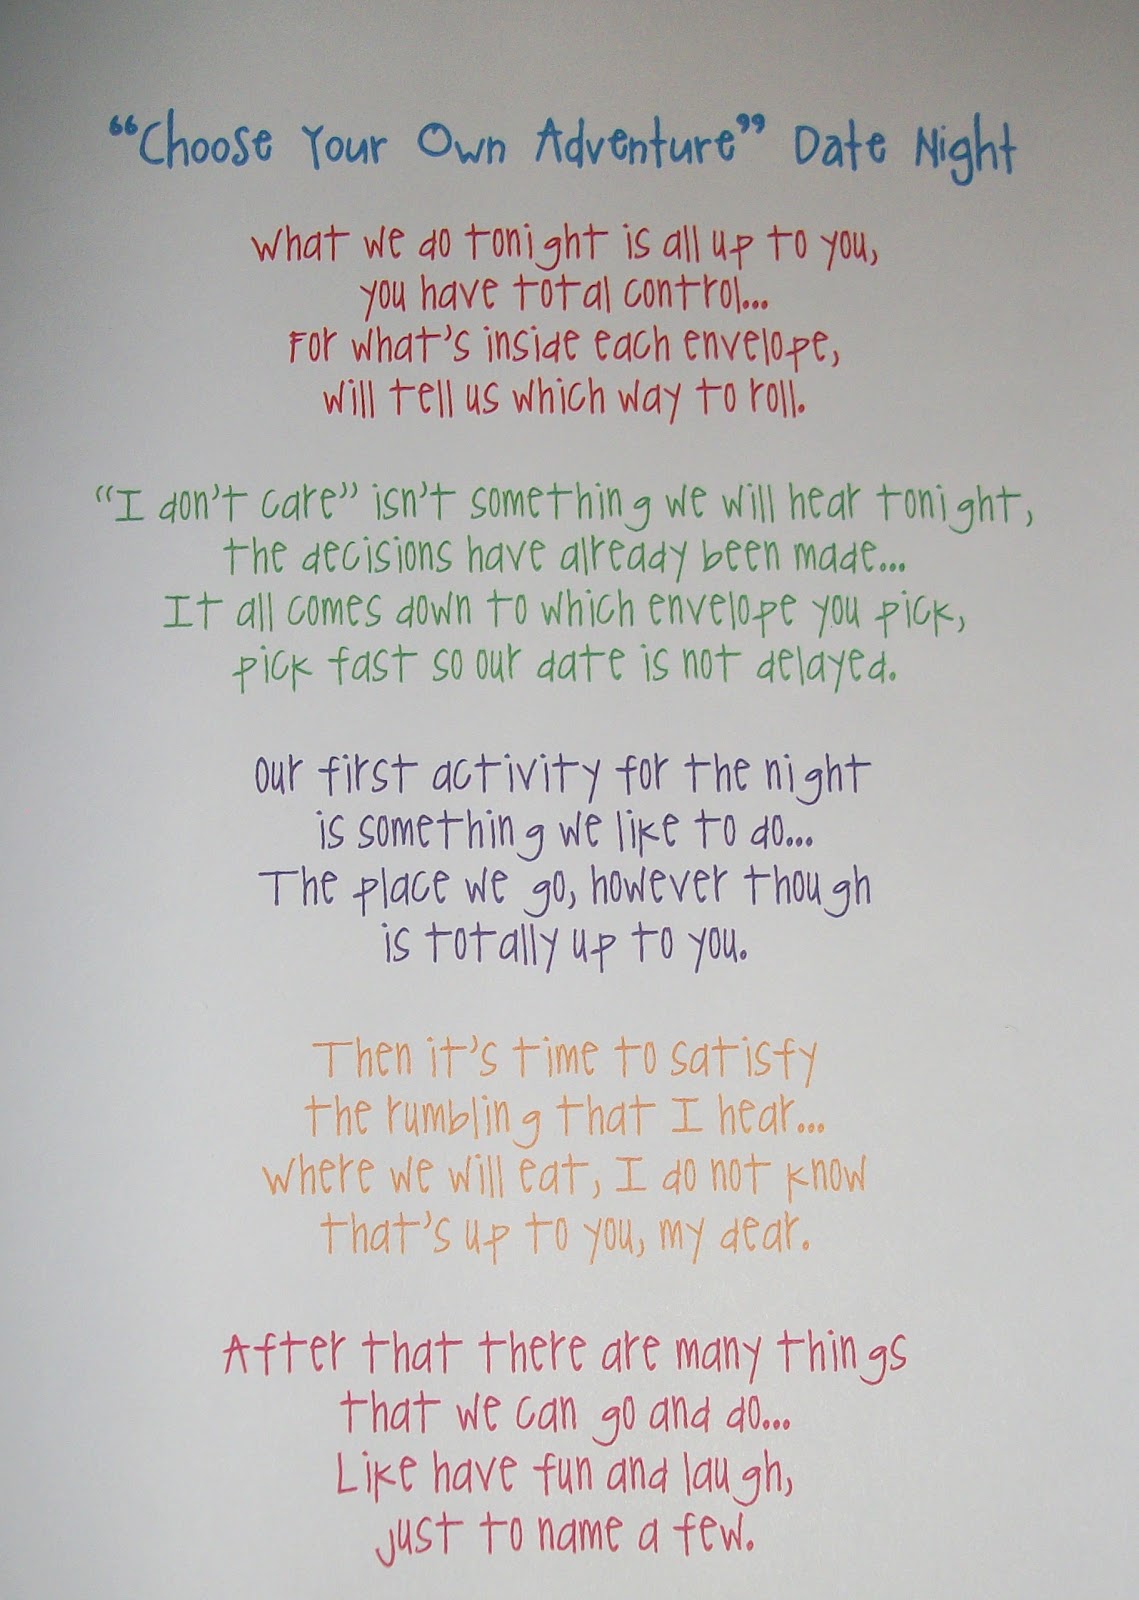 “Choose Your Own Adventure” Date Night
What we do tonight is all up to you,
you have total control...
For what's inside each envelope,
will tell us which way to roll.
“I don't care” isn't something we will hear tonight,
the decisions have already been made...
It all comes down to which envelope you pick,
pick fast so our date is not delayed.
Our first activity for the night
is something we like to do...
The place we go, however though
is totally up to you.
Then it's time to satisfy
the rumbling that I hear...
Where we will eat, I do not know
that's up to you, my dear.
After that there are many things
that we can go and do...
Like have fun and laugh,
just to name a few.